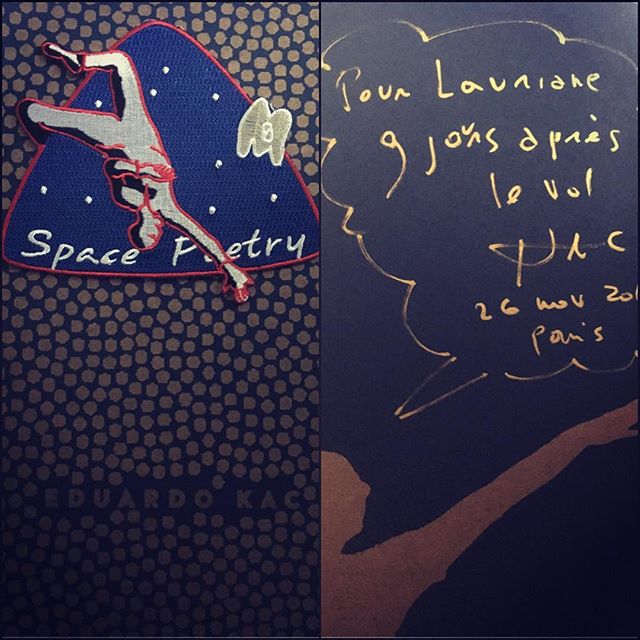 Space Poetry
EDUARDO KAC
Pour Lauriane
9 jours après
le vol
26 nov 201
Paris